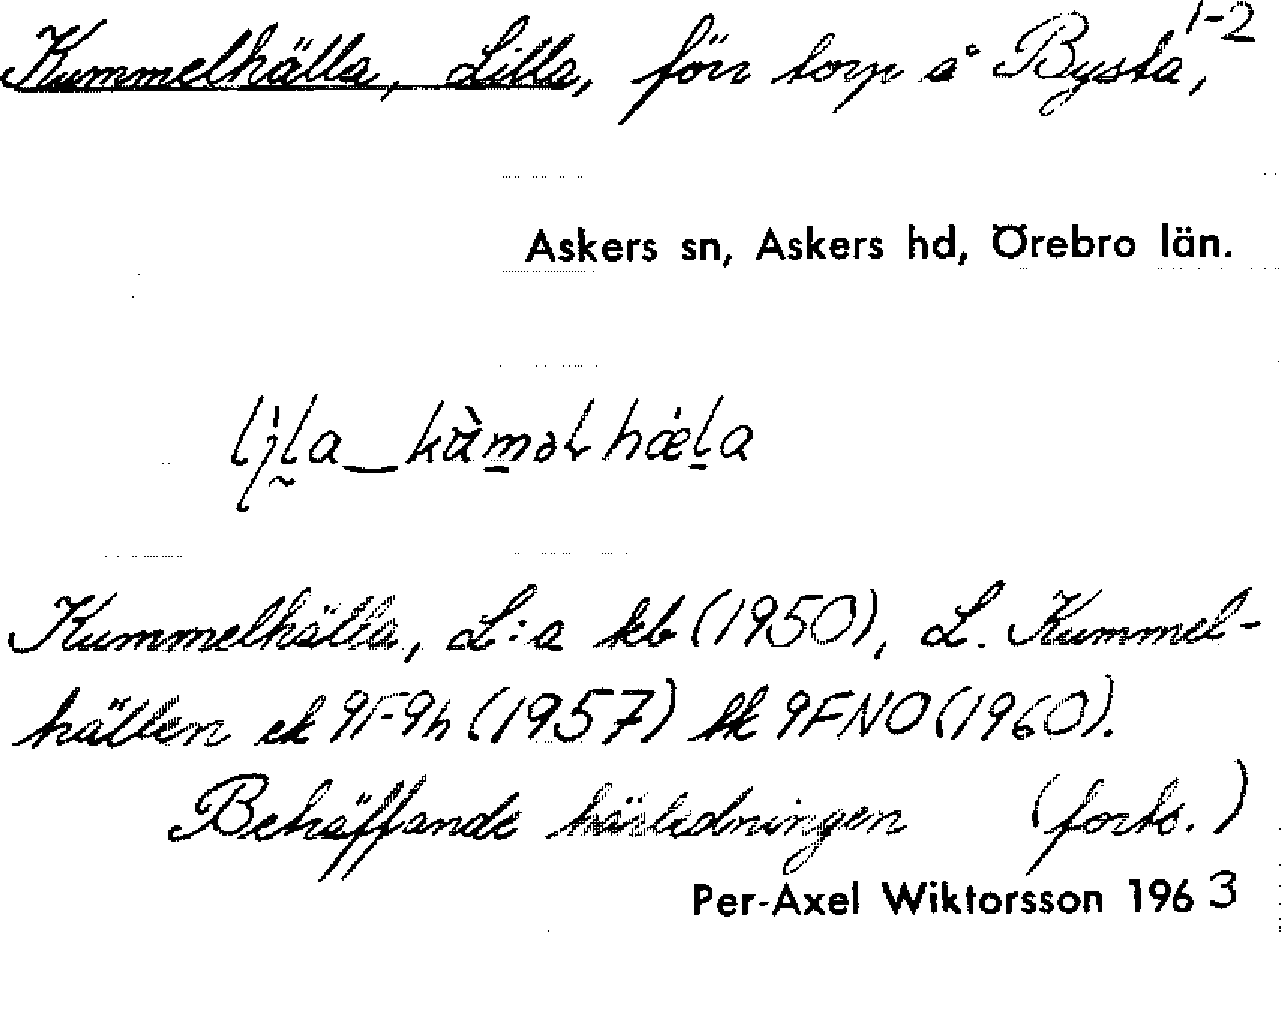 Kummelhälla, Lilla, förr torp å Bysta 1-2,
Askers sn, Askers hd, Örebro län.
Kummelhälla, L:a kb (1950), L. Kummel-
hällen ek 9F-9h (1957) tk 9FNO (1960).
Beträffande härledningen (forts.)
Per-Axel Wiktorsson 1963